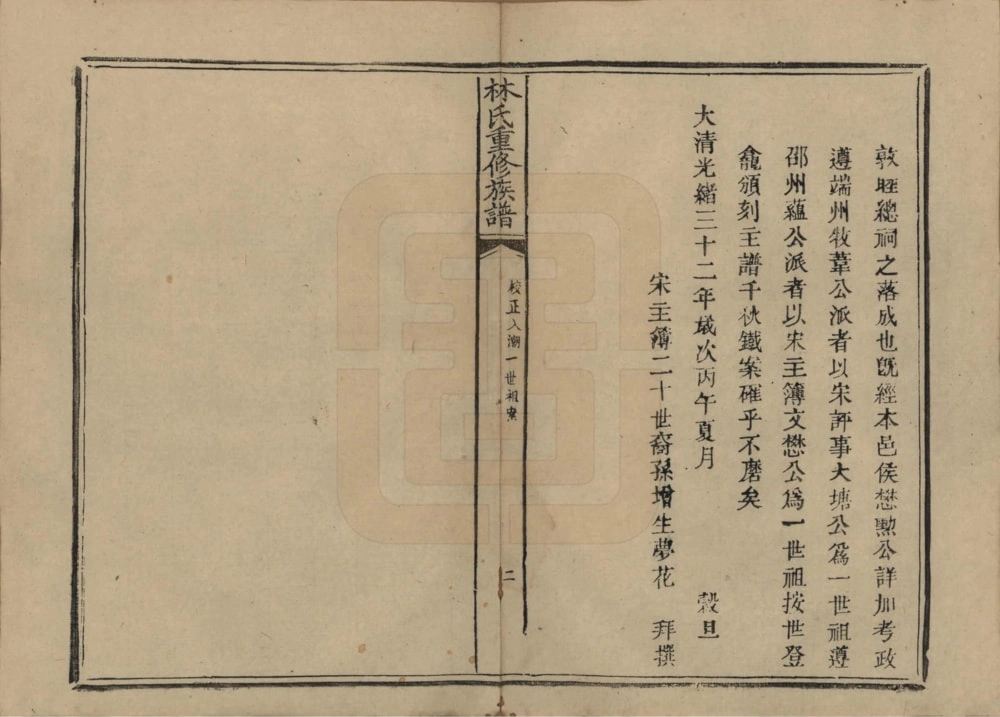 敦睦總祠之落成也既經本邑侯懋勲公詳加考政
遵端州牧葦公派者以宋評事大塘公爲一世祖遵
邵州蘊公派者以宋主簿文懋公爲一世祖按世登
龕頒刻主譜千秋鐵案確乎不磨矣
大清光緒三十二年歲次丙午夏月 榖旦
宋主簿二十世裔孫增生夢花 拜撰
林氏重修族譜
校正入潮一世祖案
二